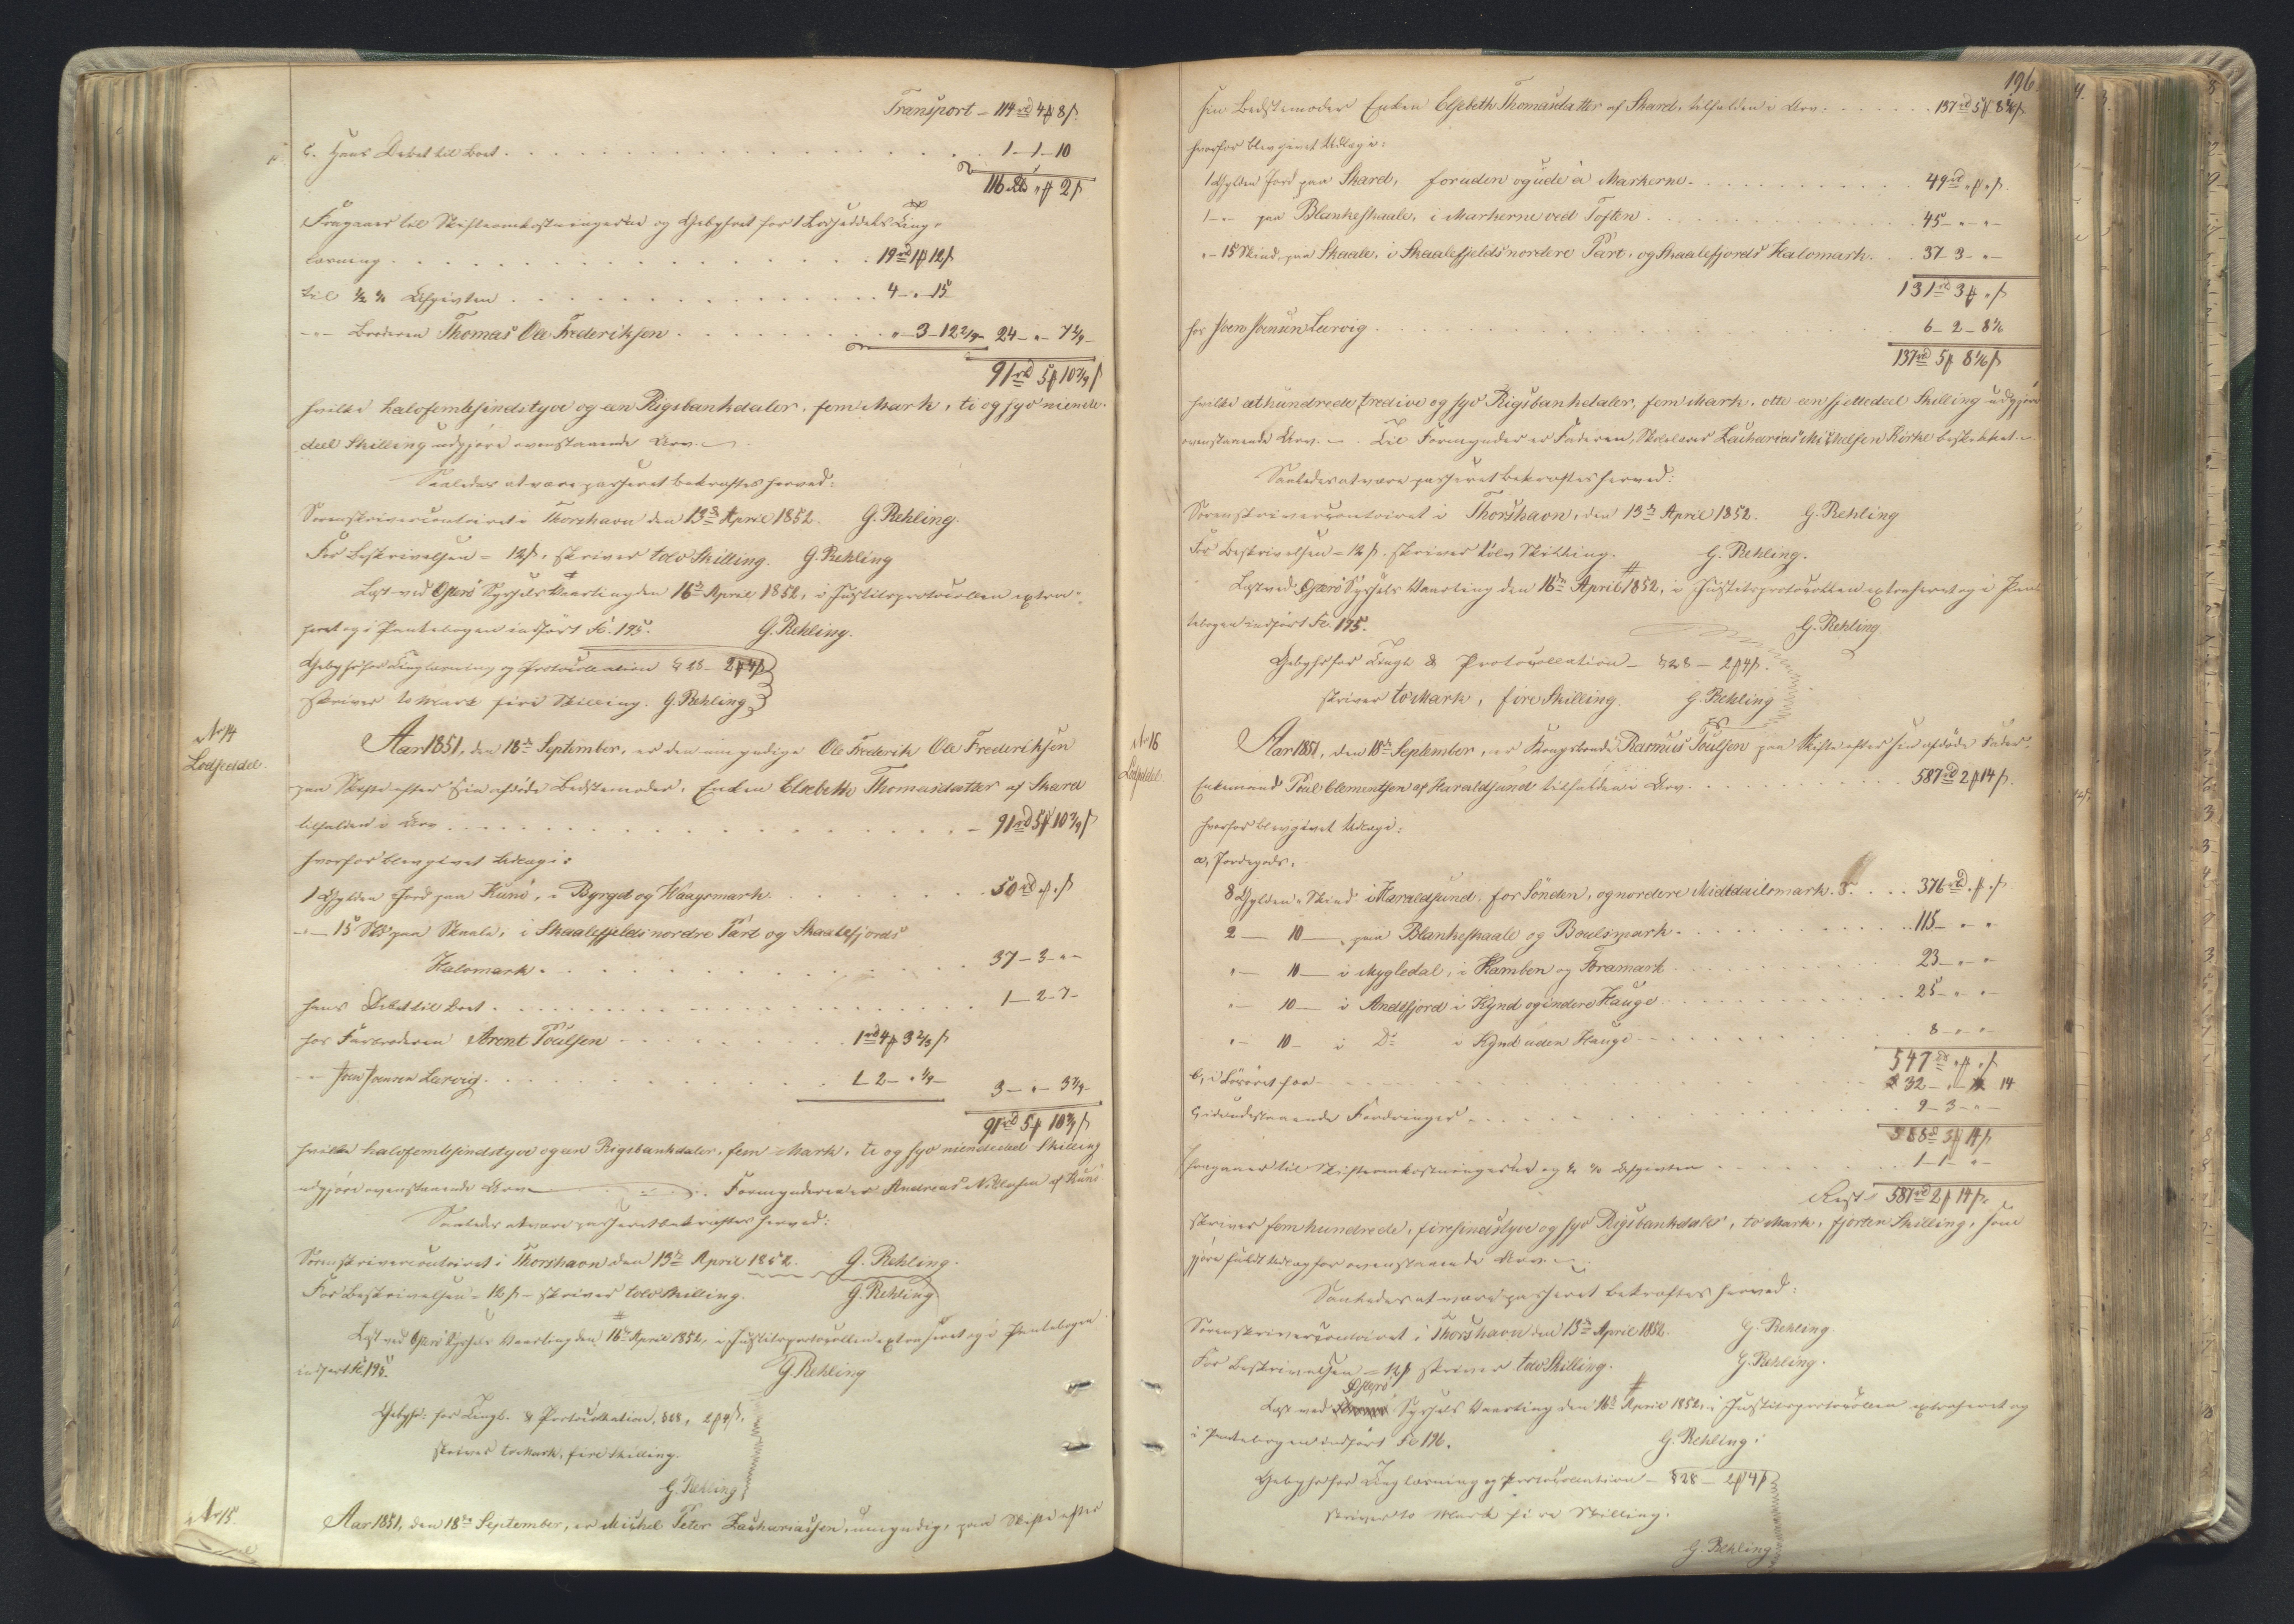 Transport - 114 rd 4 ₻ 8 ß
c. Hans Debet til Boet . . . 1 - 1 - 10
116 rd " ₻ 2 ß
Fragaaer til Skifteomkostningerne og Gebyhret for 1 Lodseddels Ting-
læsning . . . 19 rd 1 ₻ 12 ß
til ½ % Afgivten . . . 4 - " - 15
- " - Broderen Thomas Ole Frederiksen . . . " - 3 - 12 2/9 - 24 - " - 7 2/9 -
91 rd 5 ₻ 10 7/9 ß
hvilke halvfemtesindstyve og een Rigsbankdaler, fem Mark, ti og syv niende-
deel Skilling udgjøre ovenstaaende Arv. -
Saaledes at være passeret bekræftes herved:
Sorenskrivercontoiret i Thorshavn den 13de April 1852. G. Rehling.
For Beskrivelsen = 12 ß, skriver tolv Skilling. G. Rehling
Læst ved Østerø Syssels Vaarting den 16de April 1852, i Justitsprotocollen extra-
heret og i Pantebogen indført Fo. 195. G. Rehling.
Gebyhr for Tinglæsning og Protocollation § 28 - 2 ₻ 4 ß
skriver to Mark fire Skilling. G. Rehling
No 14
Lodseddel.
Aar 1851, den 18de September, er den umyndige Ole Frederik Ole Frederiksen
paa Skifte efter sin afdøde Bedstemoder, Enken Elsebeth Thomasdatter af Skard
tilfalden i Arv . . . 91 rd 5 ₻ 10 7/9 ß
hvorfor blev givet Udlæg i:
1 Gylden Jord paa Kunø, i Byrgd og Waagsmark. . . . 50 rd " ₻ " ß
- " - 15 Skd paa Skaale, i Skaalefjelds nordre Part og Skaalefjords
Halvmark. . . . 37 - 3 - " -
hans Debet til Boet . . . 1 - 2 - 7 -
hos Farbroderen Arent Poulsen . . . 1 rd 4 ₻ 3 2/3 ß
- " - Joen Joensen Lervig . . . 1 - 2 - " 1/9 - 3 - " - 3 7/9 -
91 rd 5 ₻ 10 7/9 ß
hvilke halvfemtesindstyve og een Rigsbankdaler, fem Mark, ti og syv niendedeel Skilling
udgjøre ovenstaaende Arv. Formynderen er Andreas Nielsen af Kunø
Saaledes at være passeret bekræftes herved:
Sorenskrivercontoiret i Thorshavn den 13de April 1852. G. Rehling.
For Beskrivelsen = 12 ß - skriver tolv Skilling. G. Rehling
Læst ved Østerø Syssels Vaarting den 16de April 1852, i Justitsprotocollen extraheret og i Pantebogen
indført Fo. 195. G. Rehling
Gebyhr: for Tingl. & Protocollation, § 28, 2 ₻ 4 ß.
skriver to Mark, fire Skilling.
G. Rehling
No 15.
Aar 1851, den 18de September, er Michel Peter Zachariassen, umyndig, paa Skifte efter
196
sin Bedstemoder Enken Elsebeth Thomasdatter af Skard, tilfalden i Arv: . . . 137 rd 5 ₻ 8 1/6 ß
hvorfor blev givet Udlæg i:
1 Gylden Jord paa Skard, foruden og ude á Markerne. . . . 49 rd " ₻ " ß.
1 - " - paa Blankeskaale, i Markerne ved Toften . . . 45 - " - " -
" - 15 Skind, paa Skaale, i Skaalefjelds nordere Part, og Skaalefjords Halvmark. . . 37 - 3 - " -
131 rd 3 ₻ " ß
hos Joen Joensen Lervig . . . 6 - 2 - 8 1/6
137 rd 5 ₻ 8 1/6 ß
hvilke et hundrede tredive og syv Rigsbankdaler, fem Mark, otte een sjettedeel Skilling udgjøre
ovenstaaende Arv. - . Til Formynder er Faderen, Skolelærer Zacharias Michelsen Kirke beskikket. -
Saaledes at være passeret bekræftes herved:
Sorenskrivercontoiret i Thorshavn, den 13de April 1852. G. Rehling
For Beskrivelsen = 12 ß. skriver tolv Skilling. G. Rehling.
Læst ved Østerø Syssels Vaarting den 16de April 1852, i Justitsprotocollen extraheret og i Pan-
tebogen indført Fo. 195. G. Rehling.
Gebyhr for Tingl. & Protocollation - § 28 - 2 ₻ 4 ß.
skriver to Mark, fire Skilling. G. Rehling
No 16
Lodseddel.
Aar 1851, den 18de September, er Kongsbonde Rasmus Poulsen paa Skifte efter sin afdøde Fader,
Enkemand Poul Clementsen af Haraldsund tilfalden i Arv . . . 587 rd 2 ₻ 14 ß.
hvorfor blev givet Udlæg i:
a, Jordegods.
8 Gylden " Skind i Haraldsund, for Sønden, og nordere Middailsmark. . . . 376 rd " ₻ " ß
2 - 10 - , paa Blankeskaale og Boulsmark . . . 115 - " - "
" - 10 - i Mygledal, i Hamben og Foramark . . . 23 - " - "
" - 10 - i Andefjord i Kynd og indere Hauge . . . 25 - " - "
" - 10 - i Do i Kynd uden Hauge . . . 8 - " - "
547 rd " ₻ " ß
b, i Løsøret for . . . 32 - " - 14
c, i udestaaende Fordringer . . . 9 - 3 - " -
588 rd 3 ₻ 14 ß
fragaaer til Skifteomkostningerne og ½ % Afgivten . . . 1 - 1 - " -
Rest = 587 rd 2 ₻ 14 ß.
skriver fem hundrede, firesindstyve og syv Rigsbankdaler, to Mark, fjorten Skilling, som
gjøre fuldt Udlæg for ovenstaaende Arv. -
Saaledes at være passeret bekræftes herved:
Sorenskrivercontoiret i Thorshavn den 13de April 1852. G. Rehling
For Beskrivelsen = 12 ß skriver tolv Skilling. G. Rehling.
Østerø
Læst ved Syssels Vaarting den 16de April 1852, i Justitsprotocollen extraheret og
i Pantebogen indført Fo 196. G. Rehling.
Gebyhr for Tinglæsning og Protocollation - § 28 - 2 ₻ 4 ß
skriver to Mark fire Skilling.
G. Rehling